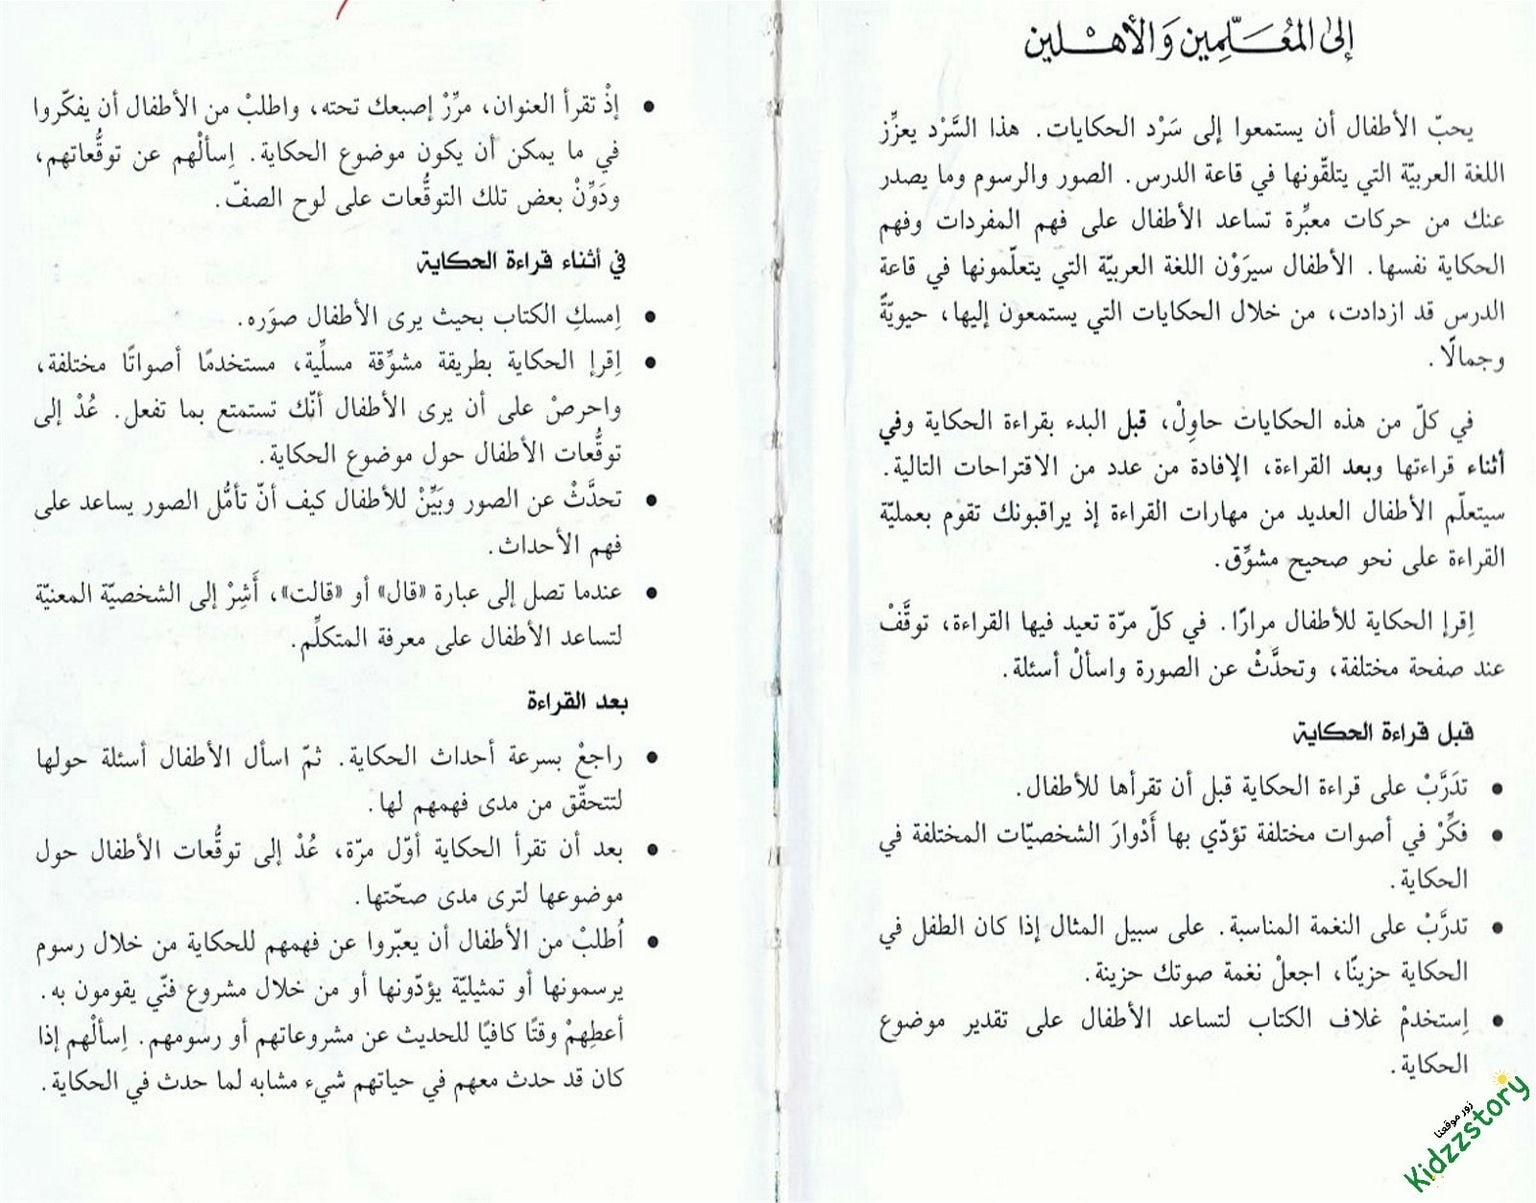 إلى المُعَلِّمين وَالأهلين
يحبّ الأطفال أن يستمعوا إلى سَرْد الحكايات. هذا السَّرْد يعزِّز
اللغة العربيّة التي يتلقّونها في قاعة الدرس. الصور والرسوم وما يصدر
عنك من حركات معبِّرة تساعد الأطفال على فهم المفردات وفهم
الحكاية نفسها. الأطفال سيرَوْن اللغة العربيّة التي يتعلّمونها في قاعة
الدرس قد ازدادت، من خلال الحكايات التي يستمعون إليها، حيويّةً
وجمالًا.
في كلّ من هذه الحكايات حاوِلْ، قبل البدء بقراءة الحكاية وفي
أثناء قراءتها وبعد القراءة، الإفادة من عدد من الاقتراحات التالية.
سيتعلّم الأطفال العديد من مهارات القراءة إذ يراقبونك تقوم بعمليّة
القراءة على نحو صحيح مشوِّق.
اِقرإ الحكاية للأطفال مرارًا. في كلّ مرّة تعيد فيها القراءة، توقَّفْ
عند صفحة مختلفة، وتحدَّثْ عن الصورة واسألْ أسئلة.
قبل قراءة الحكاية
• تدَرَّبْ على قراءة الحكاية قبل أن تقرأها للأطفال.
• فكِّرْ في أصوات مختلفة تؤدّي بها أَدْوارَ الشخصيّات المختلفة في
الحكاية.
• تدرَّبْ على النغمة المناسبة. على سبيل المثال إذا كان الطفل في
الحكاية حزينًا، اجعلْ نغمة صوتك حزينة.
• اِستخدمْ غلاف الكتاب لتساعد الأطفال على تقدير موضوع
الحكاية.
• إذْ تقرأ العنوان، مرِّرْ إصبعك تحته، واطلبْ من الأطفال أن يفكّروا
في ما يمكن أن يكون موضوع الحكاية. اِسألْهم عن توقُّعاتهم،
ودَوِّنْ بعض تلك التوقُّعات على لوح الصفّ.
في أثناء قراءة الحكاية
• اِمسكِ الكتاب بحيث يرى الأطفال صوَره.
• اِقرإ الحكاية بطريقة مشوِّقة مسلِّية، مستخدمًا أصواتًا مختلفة،
واحرصْ على أن يرى الأطفال أنّك تستمتع بما تفعل. عُدْ إلى
توقُّعات الأطفال حول موضوع الحكاية.
• تحدَّثْ عن الصور وبَيِّنْ للأطفال كيف أنّ تأمُّل الصور يساعد على
فهم الأحداث.
• عندما تصل إلى عبارة «قال» أو «قالت»، أَشِرْ إلى الشخصيّة المعنيّة
لتساعد الأطفال على معرفة المتكلِّم.
بعد القراءة
• راجعْ بسرعة أحداث الحكاية. ثمّ اسأل الأطفال أسئلة حولها
لتتحقّق من مدى فهمهم لها.
• بعد أن تقرأ الحكاية أوّل مرّة، عُدْ إلى توقُّعات الأطفال حول
موضوعها لترى مدى صحّتها.
• اُطلبْ من الأطفال أن يعبّروا عن فهمهم للحكاية من خلال رسوم
يرسمونها أو تمثيليّة يؤدّونها أو من خلال مشروع فنّي يقومون به.
أعطِهمْ وقتًا كافيًا للحديث عن مشروعاتهم أو رسومهم. اِسألْهم إذا
كان قد حدث معهم في حياتهم شيء مشابه لما حدث في الحكاية.
زور موقعنا
Kidzzstory